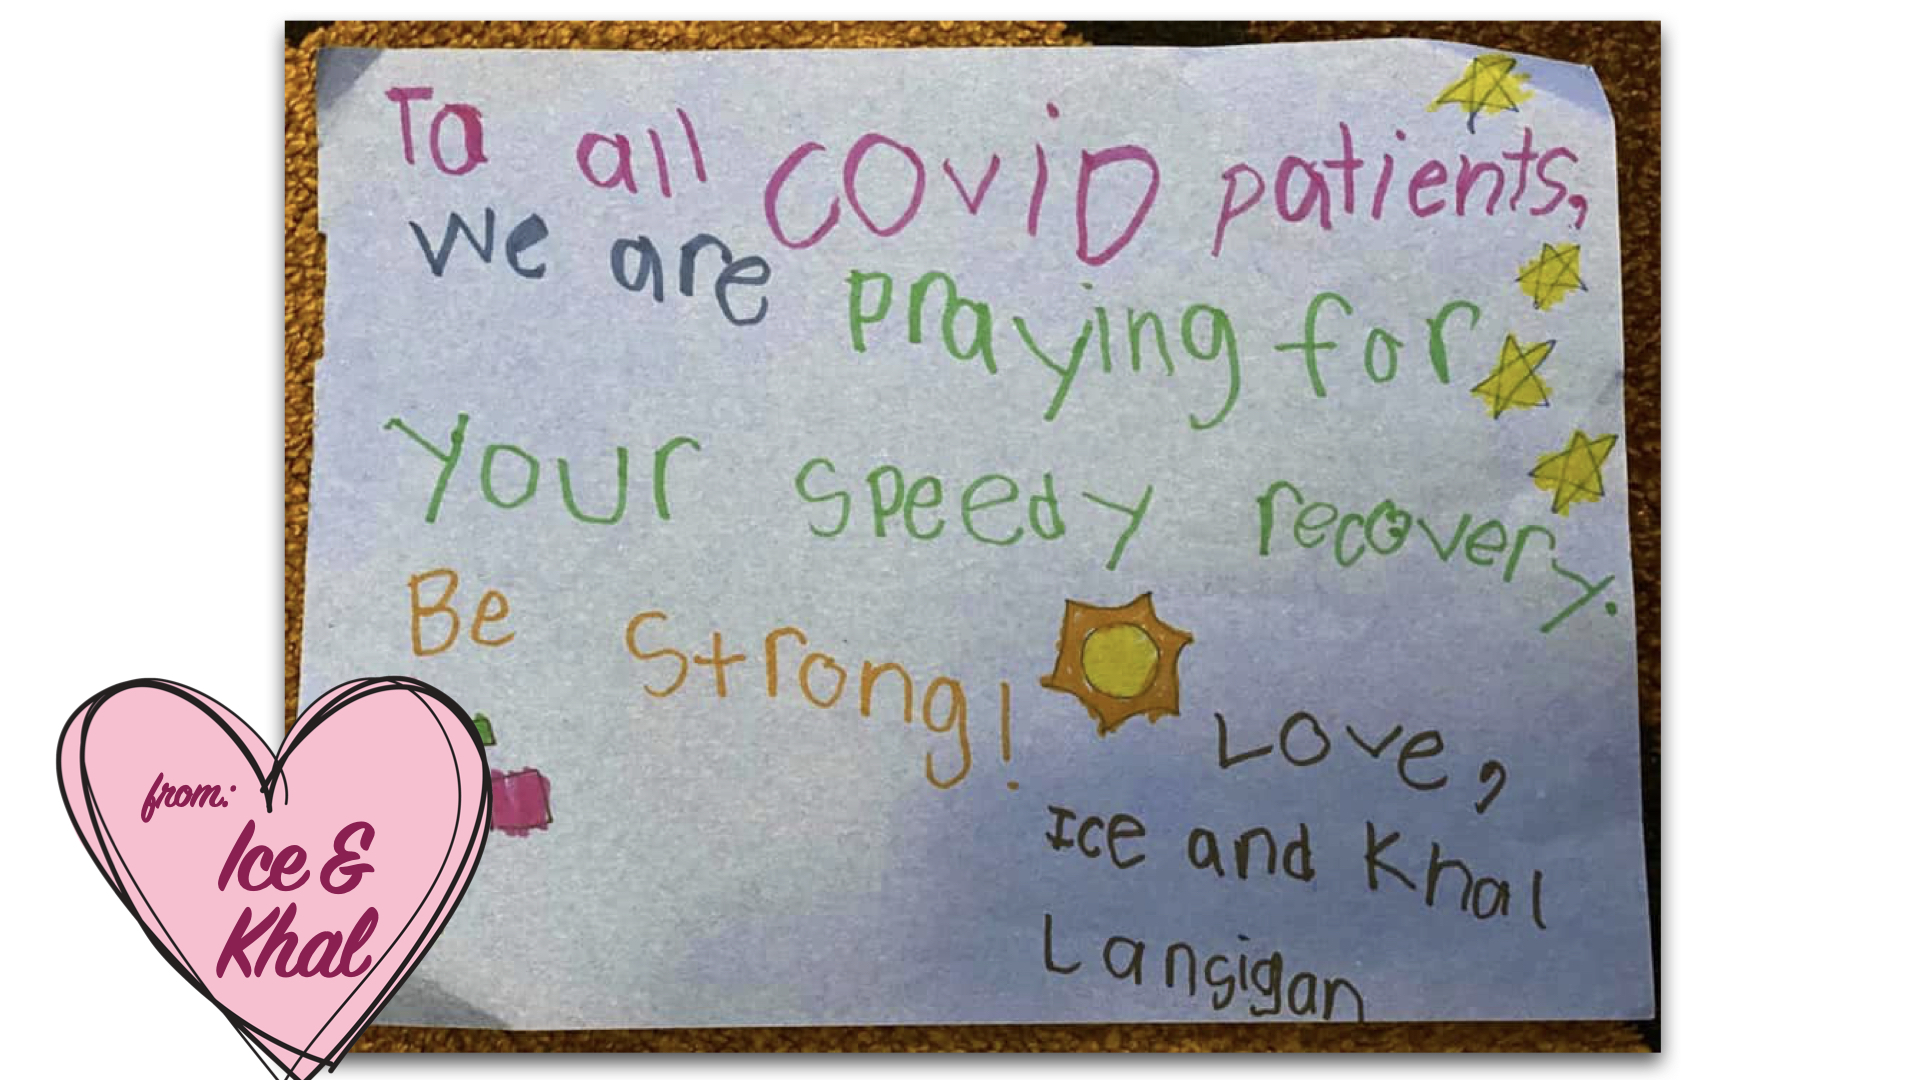 To all COviD patients,
we are praying for
your speedy recovery.
Be strong!
Love,
Ice and Khal
Langigan
from:
Ice &
Khal